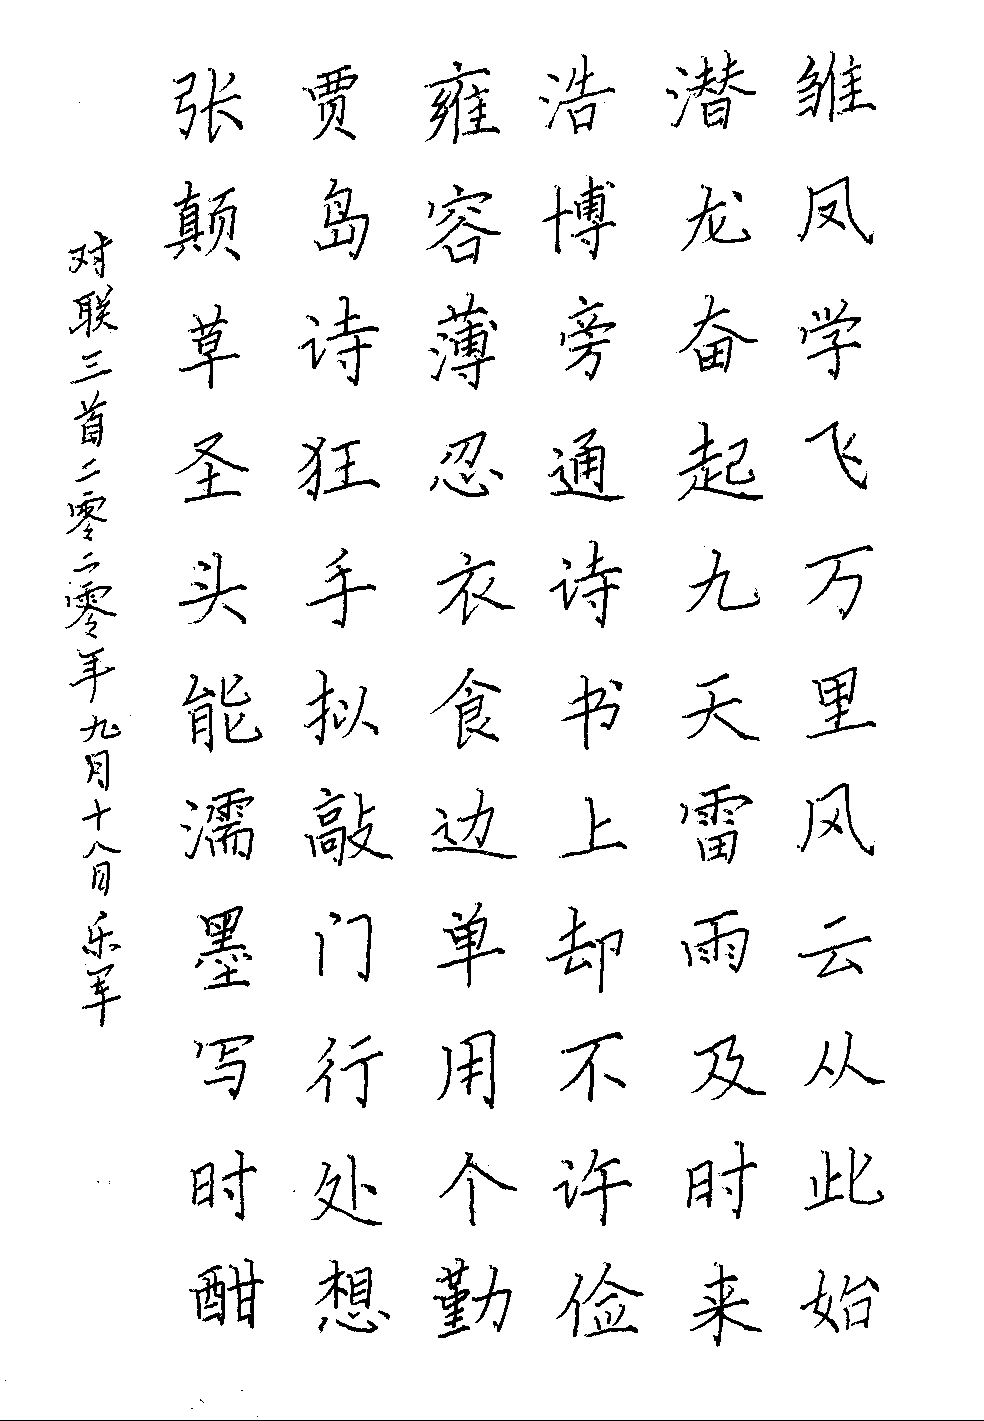 雏凤学飞万里风云从此始
潜龙奋起九天雷雨及时来
浩博旁通诗书上却不许俭
雍容薄忍衣食边单用个勤
贾岛诗狂手拟敲门行处想
张颠草圣头能濡墨写时酣
对联三首二零二零年九月十八日乐军